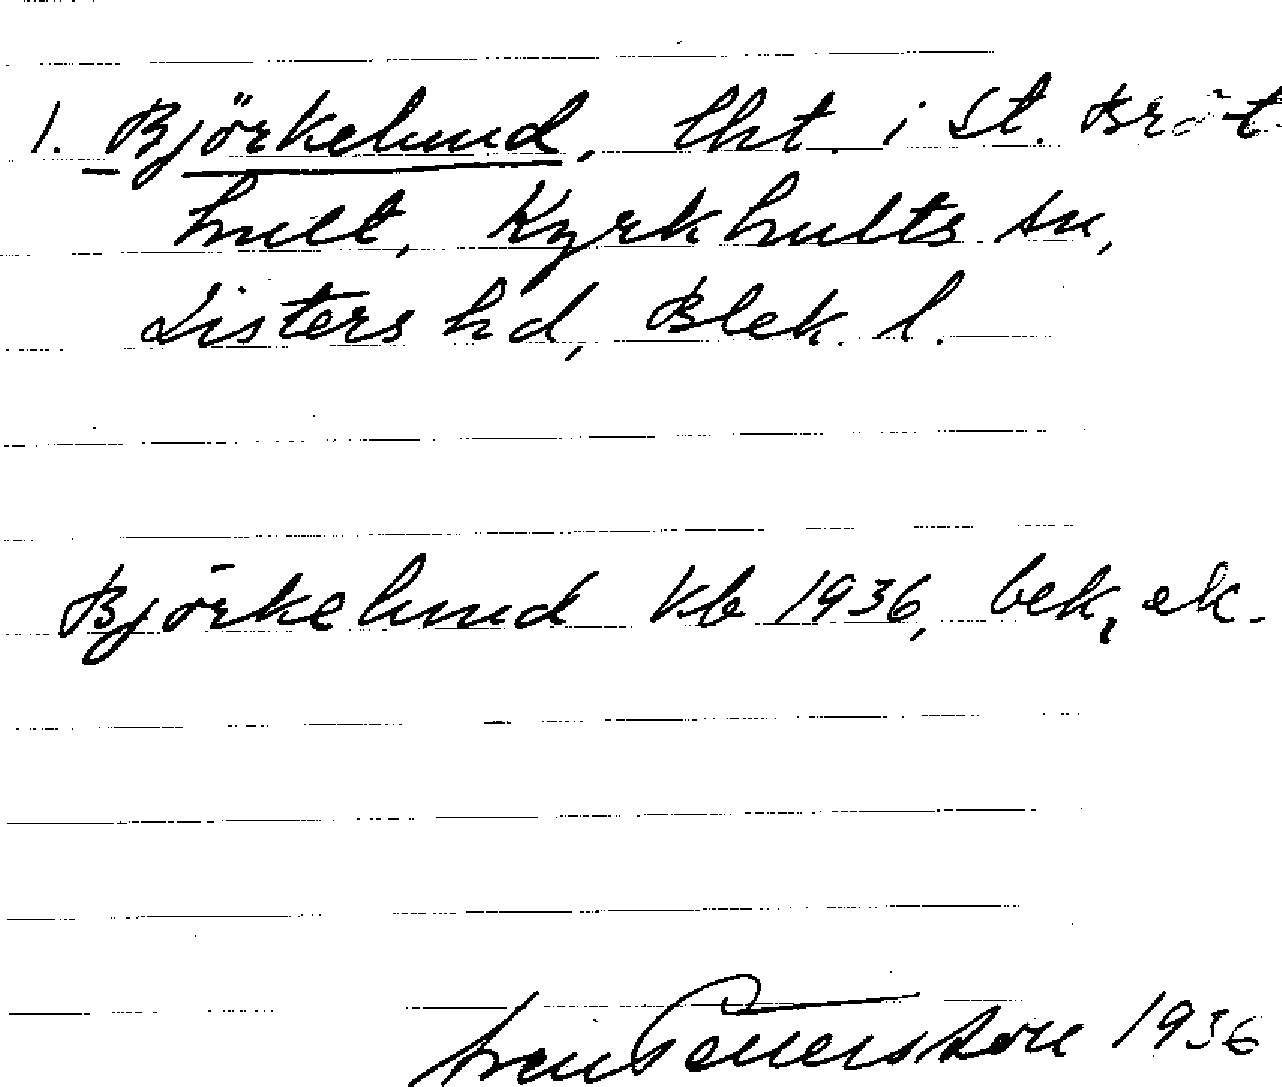 1. Björkelund, lht. i St. Bröt
hult, Kyrkhults sn,
Listers hd, Blek. l.
Björkelund kb 1936, bek, ek.
Pettersson 1936